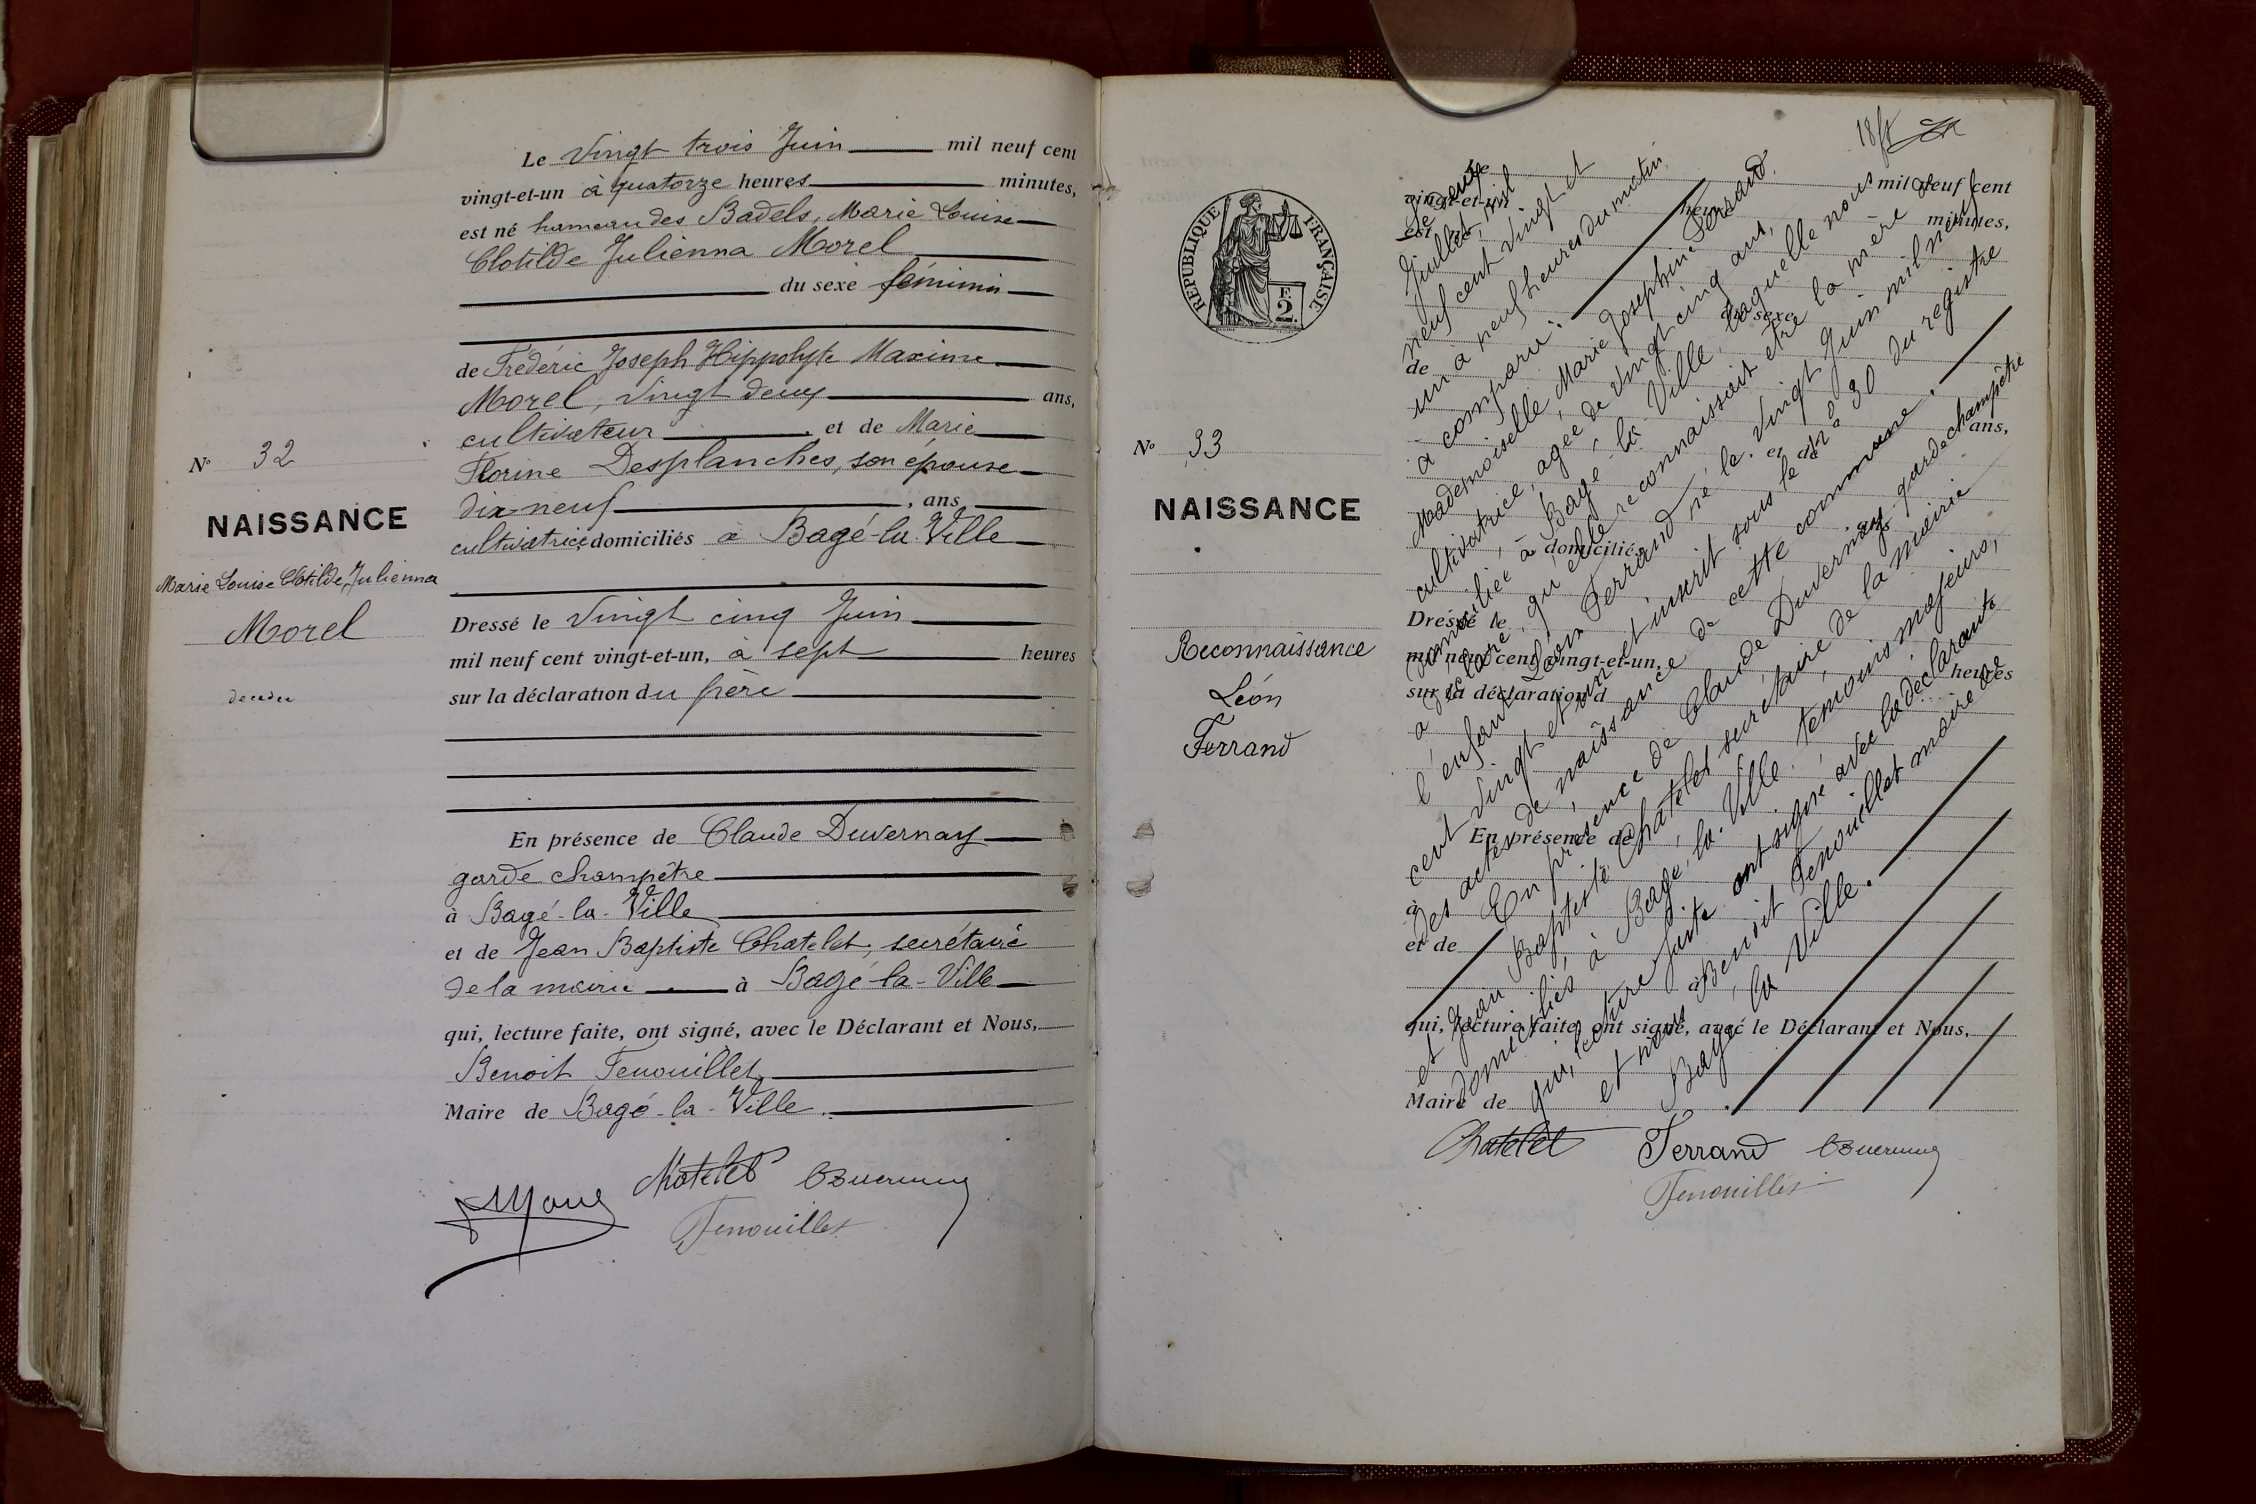 Le vingt trois Juin mil neuf cent
vingt-et-un à quatorze heures minutes,
est né hameau des Badels, Marie Louise
Clotilde Julienna Morel
du sexe féminin
de Frédéric Joseph Hippolyte Maxime
Morel, vingt deux ans,
cultivateur et de Marie
Florine Desplanches, son épouse
dix-neuf, ans
cultivatrice, domiciliés à Bagé-la-Ville
Dressé le vingt cinq Juin
mil neuf cent vingt-et-un, à sept heures
sur la déclaration du père
En présence de Claude Duvernay
garde champêtre
à Bagé-la-Ville
et de Jean Baptiste Chatelet, secrétaire
de la mairie à Bagé-la-Ville
qui, lecture faite, ont signé, avec le Déclarant et Nous,
Benoit Fenouillet,
Maire de Bagé-la-Ville.
Chatelet Duvernay
Fenouillet
No 32
NAISSANCE
Marie Louise Clotilde Julienna
Morel
18
REPUBLIQUE FRANÇAISE
F.
2.
No 33
NAISSANCE
Reconnaissance
Léon
Ferrand
Le deux
Juillet, mil
neuf cent vingt et
un à neuf heures du matin
a comparu:
Mademoiselle Marie Joséphine Ferrand.
cultivatrice, agée de vingt cinq ans,
domiciliée à Bagé-la-Ville, laquelle nous
a déclaré, qu'elle reconnaissait être la mère de
l'enfant Léon Ferrand né le vingt Juin mil neuf
cent vingt et un et inscrit sous le no 30 du registre
des actes de naissance de cette commune.
En présence de Claude Duvernay garde champêtre
et Jean Baptiste Chatelet secrétaire de la mairie
domiciliés à Bagé-la-Ville. témoins majeurs,
qui, lecture faite ont signé avec la déclarante
et nous Benoit Fenouillet maire de
Bagé la Ville.
mil neuf cent
vingt-et-un heures minutes,
est né
du sexe
de
ans,
et de
à domiciliés
Dressé le
mil neuf cent vingt-et-un, heures
sur la déclaration d
En présence de
à
et de
à
qui, lecture faite, ont signé, avec le Déclarant et Nous,
Maire de
Chatelet Ferrand Duvernay
Fenouillet